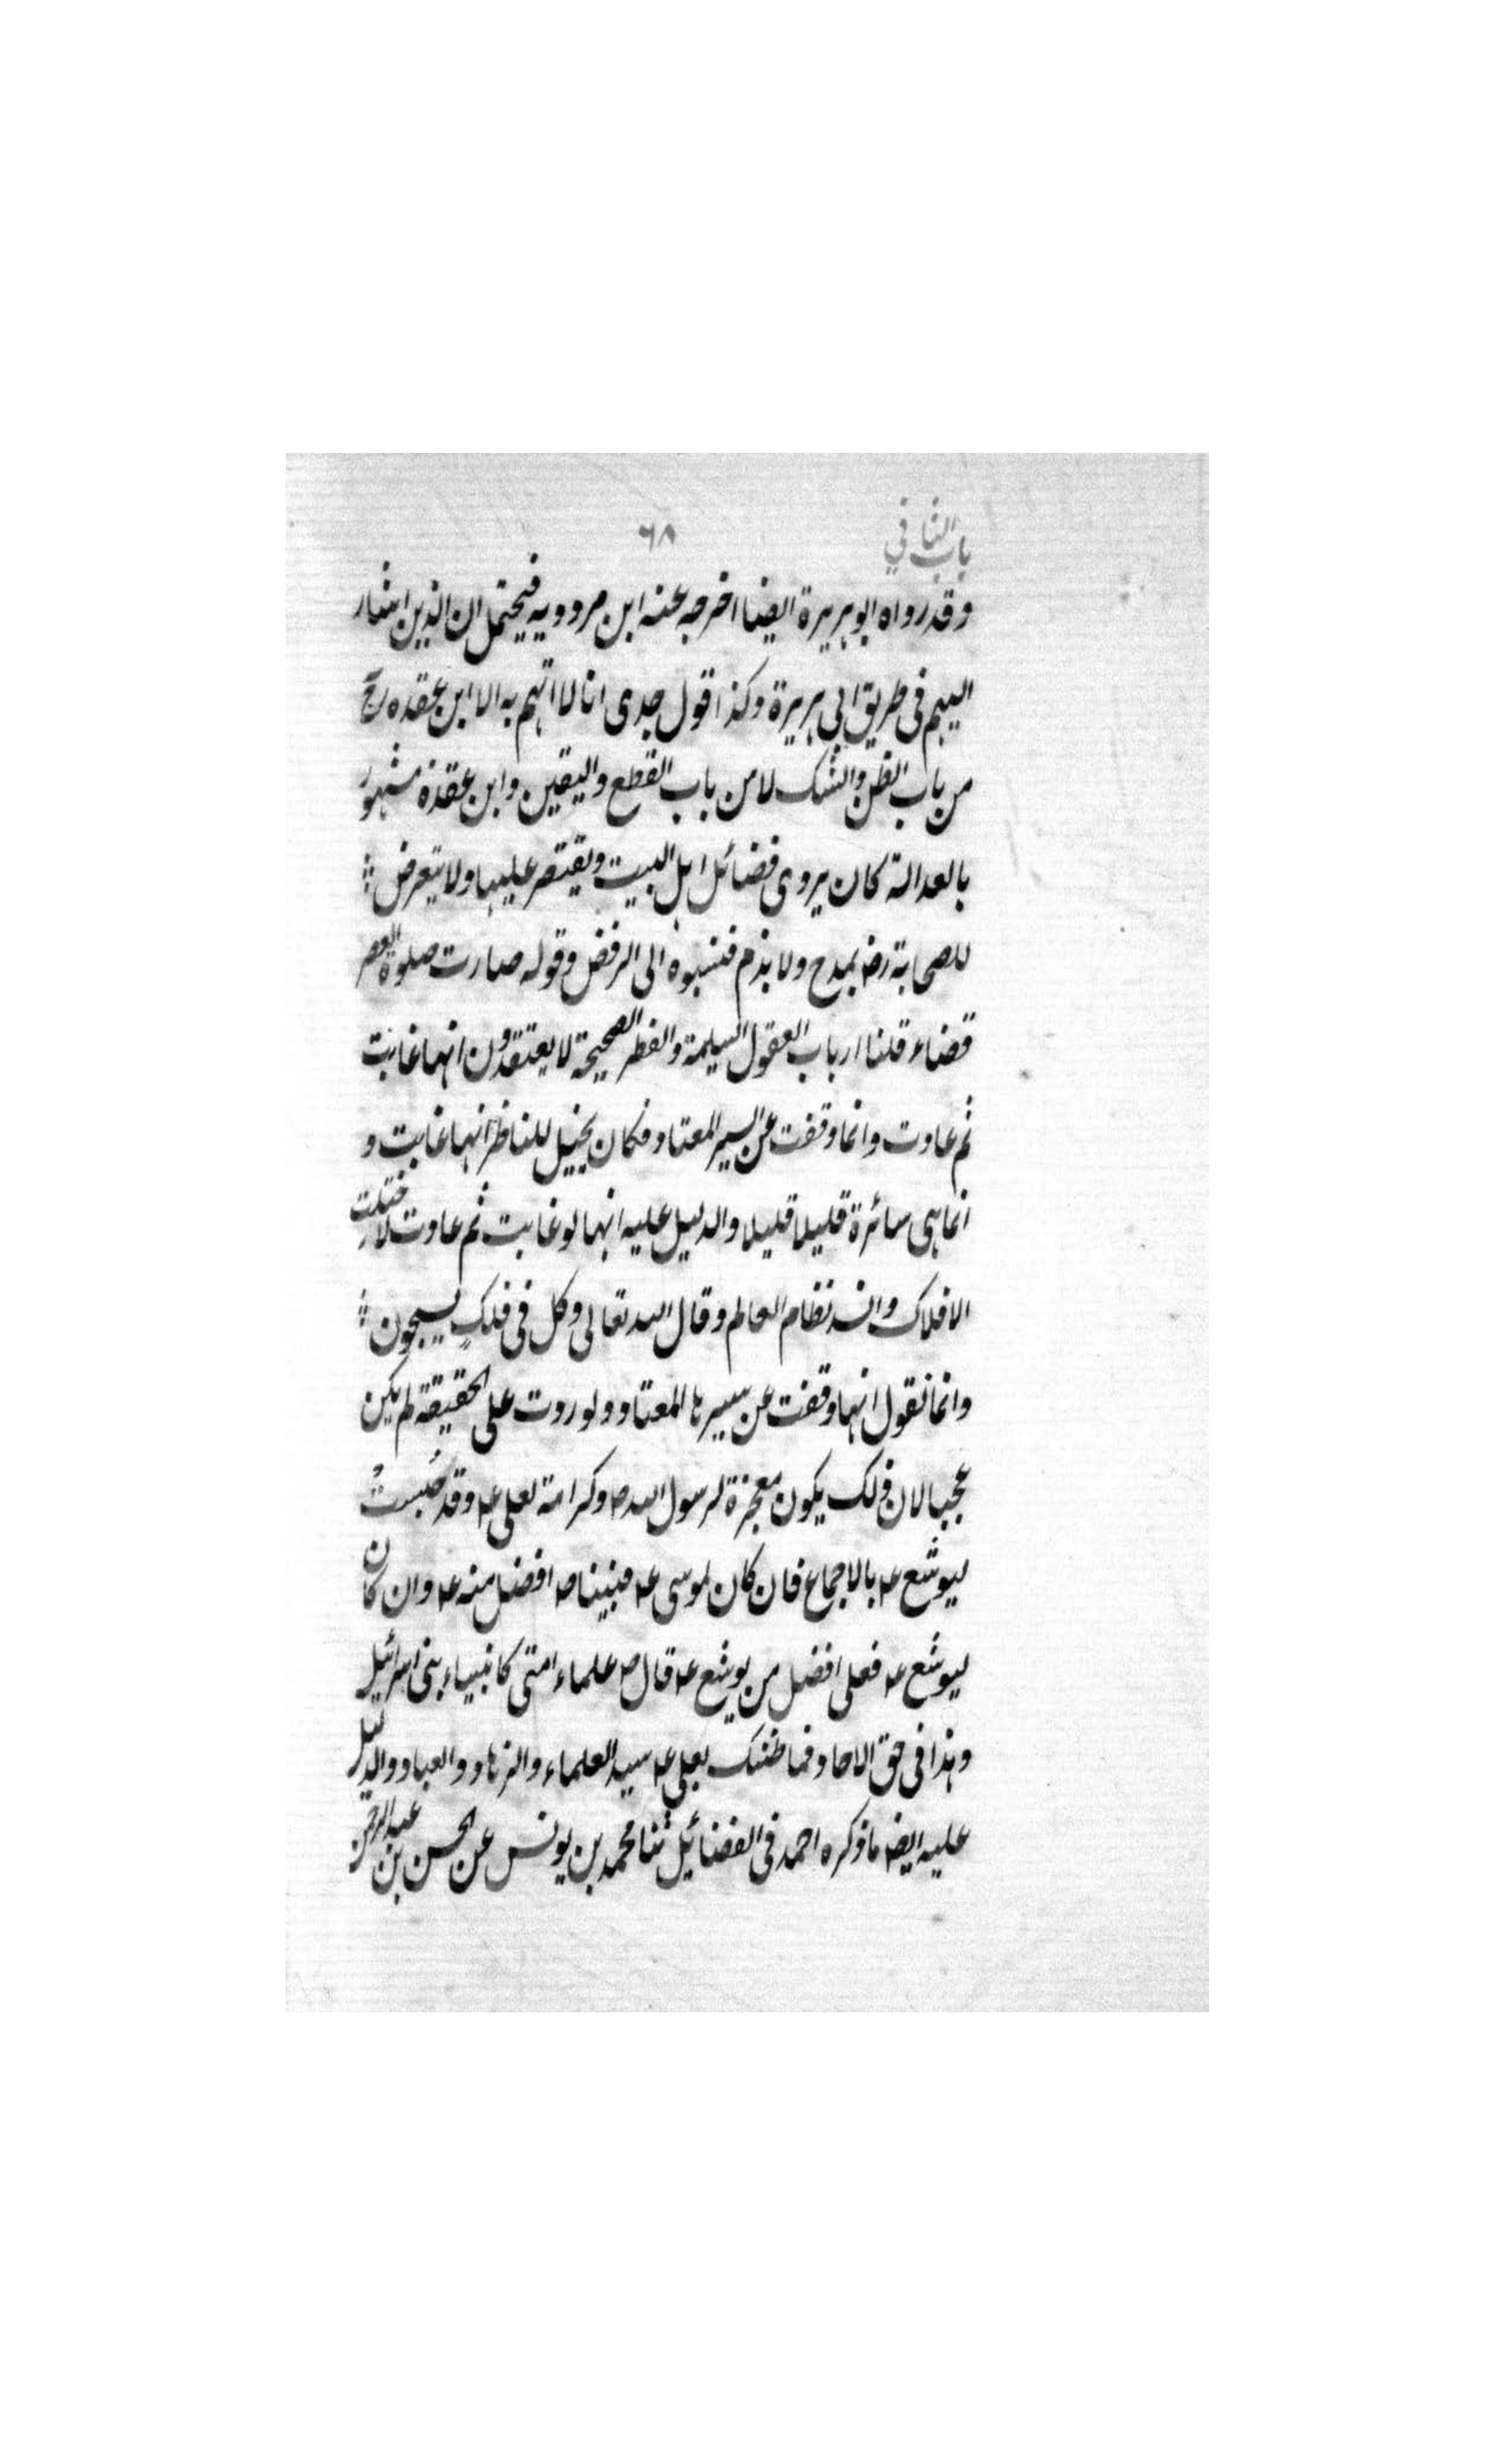 باب الثاني
٦٨
وقد رواه ابو هريرة ايضا اخرجه عنه ابن مردويه فيحتمل ان الذين اشار
اليهم فى طريق ابى هريرة وكذا قول جدى انا لا اتهم به الا ابن عقده رجّ
من باب الظن والشك لا من باب القطع واليقين وابن عقدة مشهور
بالعدالة كان يروى فضائل اهل البيت ويقتصر عليها ولا يتعرض
للصحابة رضـ بمدح ولا بذم فنسبوه الى الرفض وقوله صارت صلوة العصر
قضاء قلنا ارباب العقول السليمة والفطر الصحيحة لا يعتقدون انها غابت
ثم عادت وانما وقفت عن السير المعتاد فكان يخيل للناظر انها غابت و
انما هى سائرة قليلا قليلا والدليل عليه انها لو غابت ثم عادت لاختلت
الافلاك وانسد نظام العالم وقال الله تعالى وكل فى فلكٍ يسبحون
وانما نقول انها وقفت عن سيرها المعتاد ولو ردت على الحقيقة لم يكن
عجبا لان ذلك يكون معجزة لرسول الله صـ وكرامة لعلى عـ وقد حُبستُ
ليوشع عـ بالاجماع فان كان لموسى عـ فنبينا صـ افضل منه عـ وان كان
ليوشع عـ فعلى افضل من يوشع عـ قال صـ علماء امتى كانبياء بنى اسرائيل
وهذا فى حق الاحاد فما ظنك بعلى عـ سيد العلماء والزهاد والعباد والدليل
عليه ايضـ ما ذكره احمد فى الفضائل ثنا محمد بن يونس عن الحسن بن عبد الرحمن